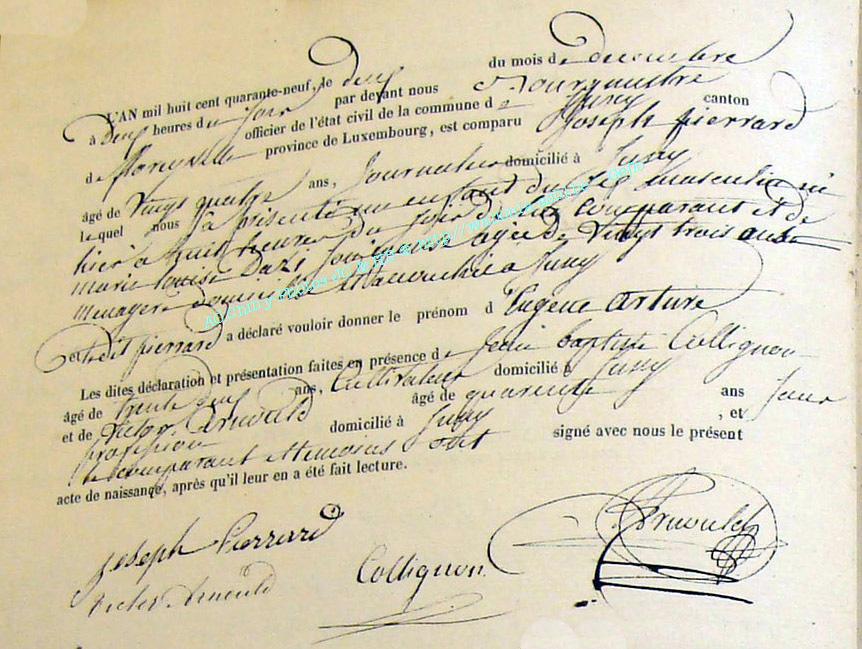 L'AN mil huit cent quarante-neuf, le deux du mois de decembre
à deux heures du jour par devant nous Bourgmestre
officier de l'état civil de la commune de Jusey canton
de florenville province de Luxembourg, est comparu Joseph pierrard
âgé de vingt quatre ans, journalier domicilié à Jusey
lequel nous a présenté un enfant du sexe masculin né
hier à huit heures du soir de lui comparant et de
marie louise agée de vingt trois ans
menagere domiciliée à Jusey
et ledit pierrard a déclaré vouloir donner le prénom d'Eugene arture
Les dites déclaration et présentation faites en présence de jean baptiste Collignon
âgé de trente deux ans, Cultivateur domicilié à Jusey
et de Victor Arnould âgé de quarante ans sans
profession domicilié à Jusey, et
le comparant et temoins ont signé avec nous le présent
acte de naissance, après qu'il leur en a été fait lecture.
joseph Pierrard
Victor Arnould
Collignon
Arnould